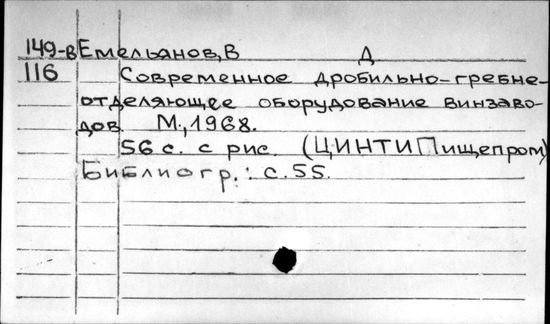 149-в Емельянов, В Д
116 Современное дробильно-гребне-
отделяющее оборудование винзаво-
дов М., 1968.
56 с. с рис. (ЦИНТИПищепром)
Библиогр.: с. 55.